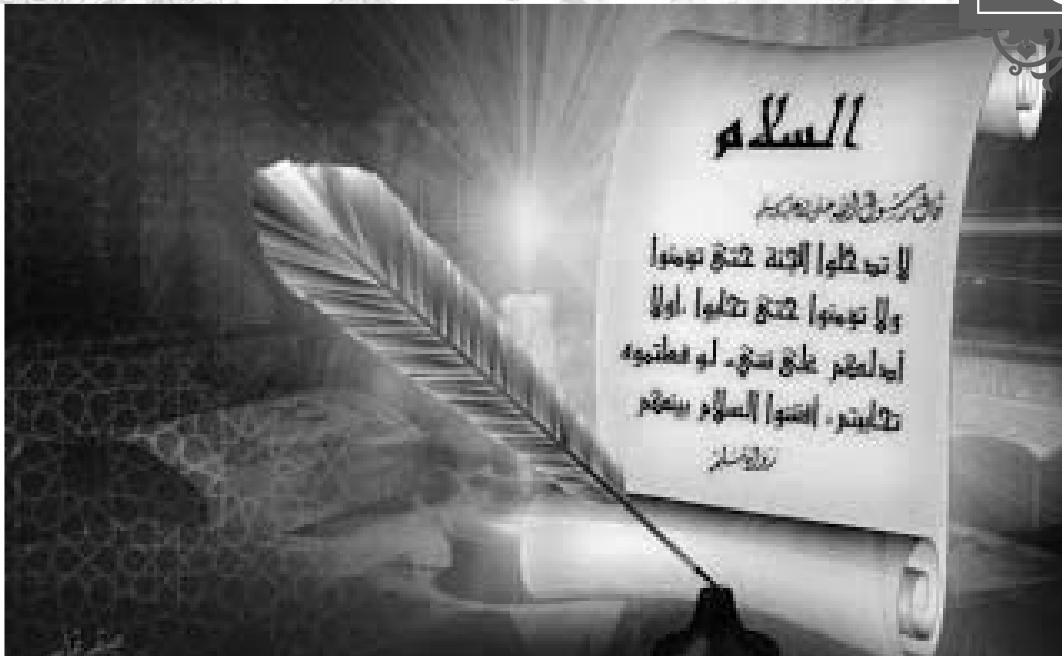 السلام
قال رسول الله صلى الله عليه وسلم
لا تدخلوا الجنة حتى تومنوا
ولا تومنوا حتى تحابوا .اولا
أدلكم على شيء لو فعلتموه
تحاببتم . افشوا السلام بينكم
رواه مسلم